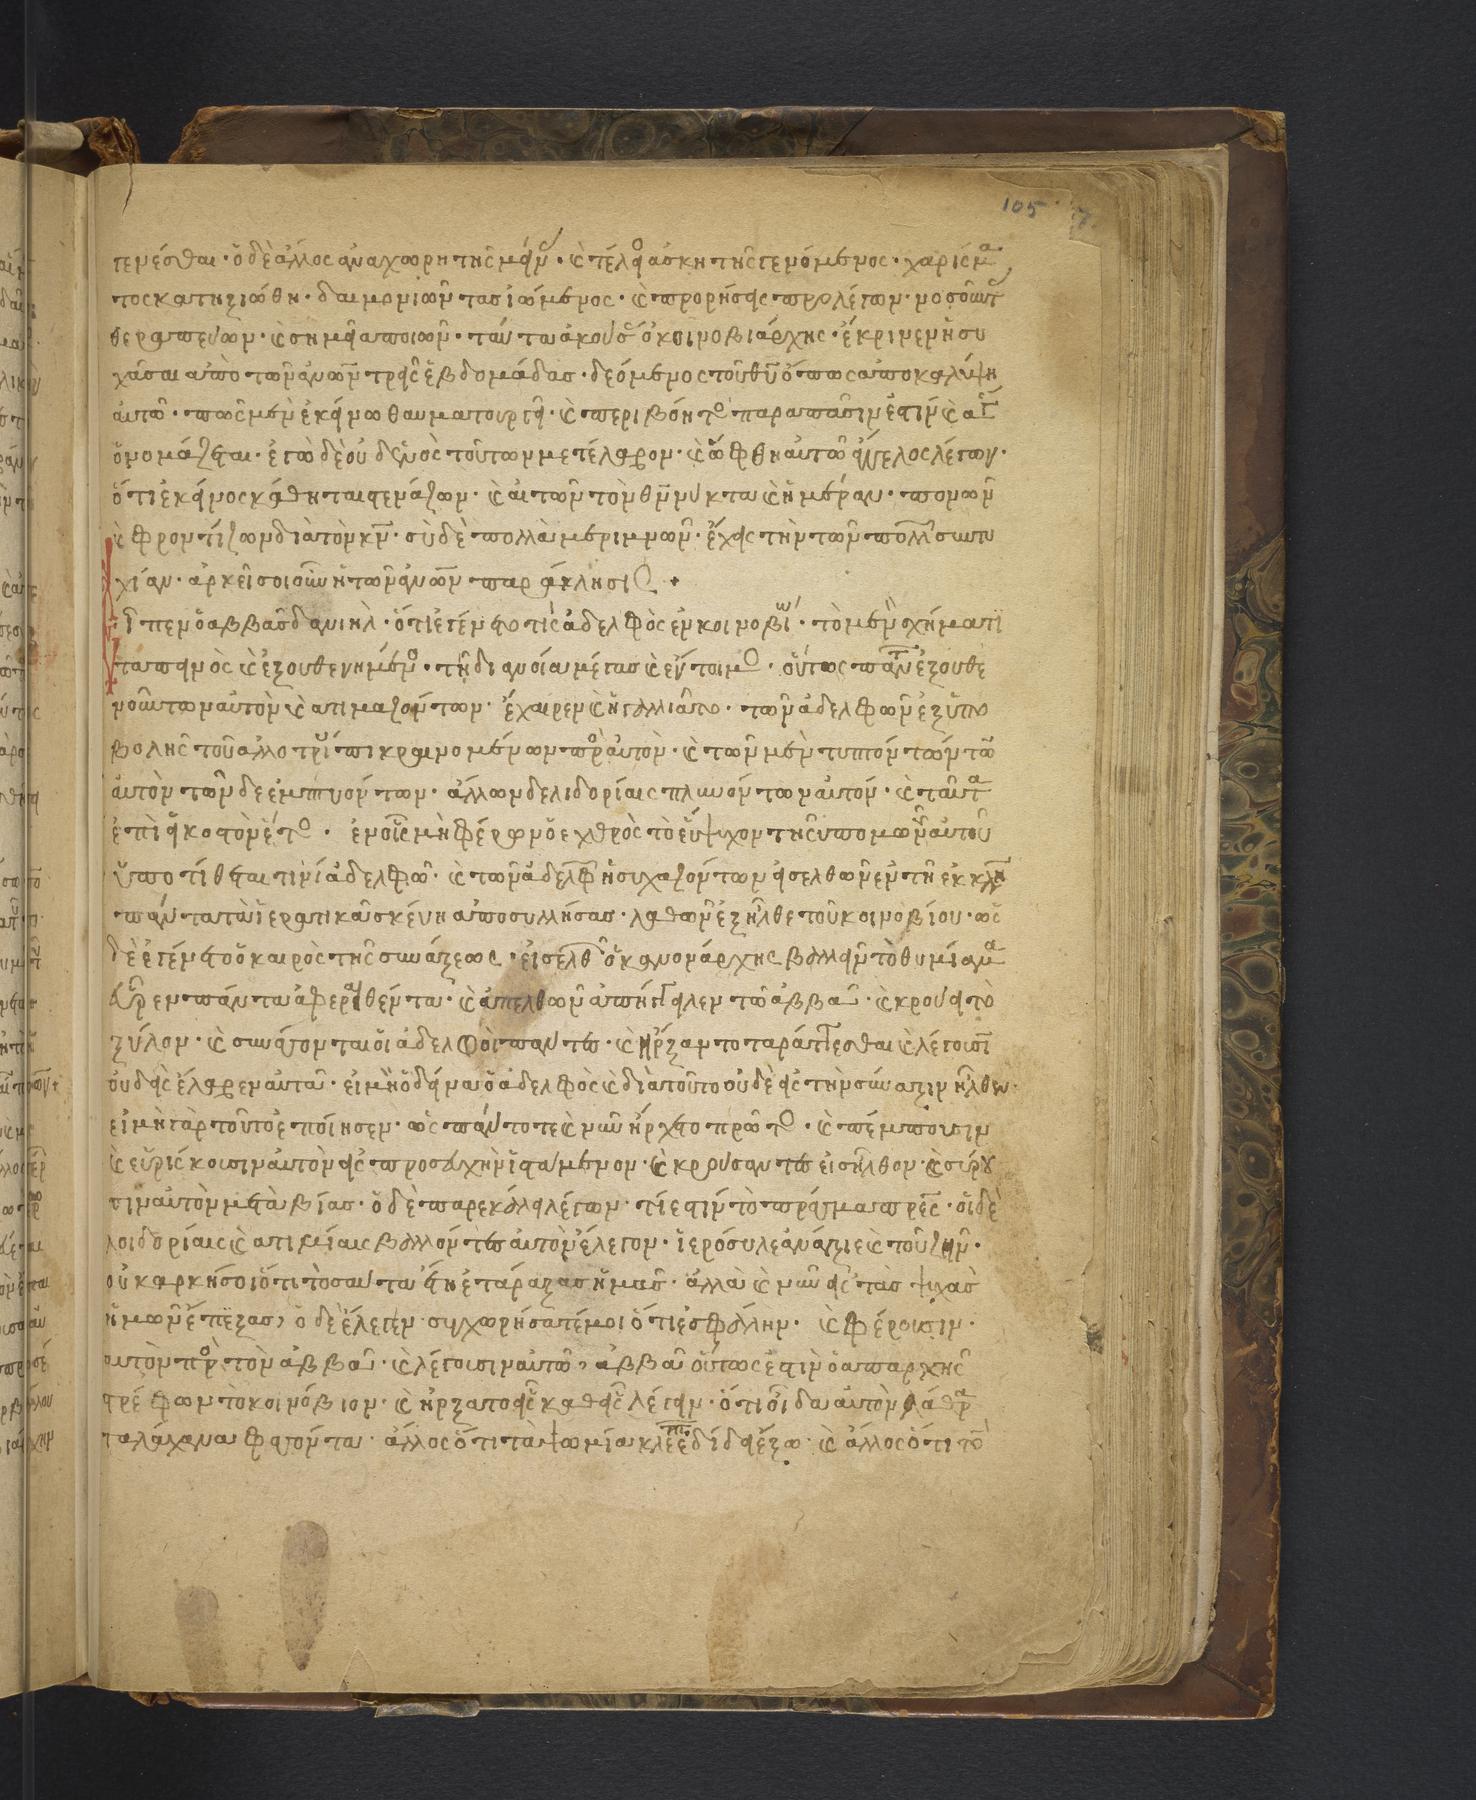 105
γενέσθαι· ὁ δὲ ἄλλος ἀναχωρητὴς μείν· καὶ τέλειο ἀσκητὴς γενόμενος· χαρίσμα
τος κατηξιώθη· δαιμονιῶν τασιώμενος· καὶ προρήσεις προλέγων· νοσοῦντ
θεραπεύων· καὶ σημεῖα ποιῶν· ταῦτα ἀκούσ ὁ κοινοβιάρχης· ἔκρινεν ἡσυ
χάσαι ἀπὸ τῶν ἀνων τρεῖς ἑβδομάδας· δεόμενος τοῦ θυ ὅπως ἀποκαλύψη
αὐτῶ· πῶς μὲν ἐκείνω θαυματουργεῖ· καὶ περιβόητο παρὰ πᾶσιν ἐστὶν καὶ
ὀνομάζεται· ἐγὼ δὲ οὐδενὸς τούτων μετέλαβον· καὶ ὤφθη αὐτῶ ἄγγελος λέγων·
ὅτι ἐκεῖνος κάθηται στενάζων· καὶ αἰτῶν τὸν θν νύκτα καὶ ἡμέραν· πονῶν
καὶ φροντίζων διὰ τὸν κν· σὺ δὲ πολλὰ μεριμνῶν· ἔχεις τὴν τῶν πολλ συντυ
χίαν· ἀρκεῖ σοι οὖν ἡ τῶν ἀνων παράκλησις +
Εἶπεν ὁ ἀββᾶς δανιὴλ· ὅτι ἐγένετό τις ἀδελφὸς ἐν κοινοβίω· τὸ μὲν σχήματι
ταπεινὸς καὶ ἐξουθενημένο· τῆ διανοία μέγας καὶ ἔντιμο· οὕτως πάντ ἐξουθε
νούντων αὐτὸν καὶ ἀτιμαζόντων· ἔχαιρεν καὶ ἠγαλλιᾶτο· τῶν ἀδελφῶν ἐξ ὑπο
βολῆς τοῦ ἀλλοτρίου πικραινομένων πρὸ αὐτὸν· καὶ τῶν μὲν τυπτόντων τῶ
αὐτὸν τῶν δὲ ἐμπτυόντων· ἄλλων δὲ λιδορίαις πλυνόντων αὐτόν· καὶ ταῦτα
ἐπὶ εἰκοστὸν ἔτο· ἐνοῖς μὴ φέρων ὁ ἐχθρὸς τὸ εὔψυχον τῆς ὑπομονῆς αὐτοῦ
ὑποτίθεται τινὶ ἀδελφῶ· καὶ τῶν ἀδελφ ἡσυχαζόντων εἰσελθὼν ἐν τῆ ἐκκλη
πάντα τὰ ἱερατικὰ σκεύη ἀποσυλλήσας· λαθὼν ἐξῆλθε τοῦ κοινοβίου· ὡς
δὲ ἐγένετο ὁ καιρὸς τῆς συνάξεως· εἰσελθ ὁ κανονάρχης βαλλεῖν τὸ θυμίαμα
εὗρεν πάντα ἀφεραιθέντα· καὶ ἀπελθὼν ἀπήγγειλεν τῶ ἀββᾶ· καὶ κρούει τὸ
ξύλον· καὶ συνάγονται οἱ ἀδελφοὶ παντες· καὶ ἤρξαντο ταράττεσθαι καὶ λέγουσι
οὐδεὶς ἔλαβεν αὐτὰ· εἰ μὴ ὁ δεῖνα ὁ ἀδελφὸς καὶ διὰ τοῦτο οὐδὲ εἰς τὴν σύναξιν ἦλθεν·
εἰ μὴ γὰρ τοῦτο ἐποίησεν· ὡς πάντοτε καὶ νῦν ἤρχετο πρῶτο· καὶ πέμπουσιν
καὶ εὑρίσκουσιν αὐτὸν εἰς προσευχὴν ἱστάμενον· καὶ κρούσαντες εἰσῆλθον· καὶ σύρου
σιν αὐτὸν μετὰ βίας· ὁ δὲ παρεκάλει λέγων· τί ἐστὶν τὸ πράγμα πρες· οἱ δὲ
λοιδορίαις καὶ ἀτιμίαις βάλλόντες αὐτὸν ἔλεγον· ἱερόσυλε ἀνάξιε καὶ τοῦ ζῆν·
οὐκ ἀρκῆσοι ὅτι τοσαῦτα ἔτη ἐτάραξας ἡμᾶς· ἀλλὰ καὶ νῦν εἰς τὰς ψυχὰς
ἡμῶν ἔπεξας, ὁ δὲ ἔλεγεν συγχωρήσατέ μοι ὅτι ἐσφάλην· καὶ φέρουσιν
αὐτὸν πρὸ τὸν ἀββᾶ· καὶ λέγουσιν αὐτῶ, ἀββᾶ οὗτος ἐστὶν ὁ ἀπαρχῆς
στρέφων τὸ κοινόβιον· καὶ ἤρξατο εἷς καθεῖς λέγειν· ὅτι οἶδα αὐτὸν λάθρα
τα λάχανα φαγόντα· ἄλλος ὅτι τὰ ψωμία κλέπτ ἐδίδει ἔξω· καὶ ἄλλος ὅτι τὸ